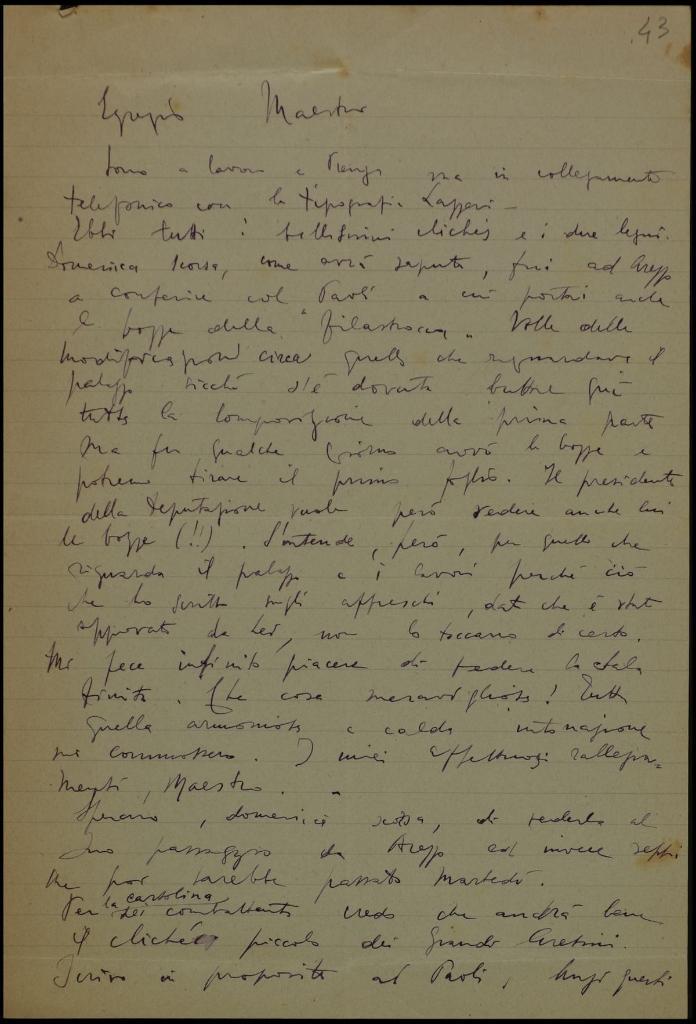 43
Egregio Maestro
Sono a lavoro a Firenze ma in collegamento
telefonico con la tipografia
Ebbi tutti i bellissimi clichés e i due legni.
Domenica scorsa, come avrà saputo, fui ad Arezzo
a conferire col Paoli a cui portai anche
le bozze della "filastrocca". Volle delle
modificazioni circa quello che riguardava il
palazzo sicché s'è dovuta buttare giù
tutta la composizione della prima parte
ma fra qualche giorno avrò le bozze e
potremo tirare il primo foglio. Il presidente
della Deputazione vuole però vedere anche lui
le bozze (!!). S'intende, però, per quello che
riguarda il palazzo e i lavori perché ciò
che ho scritto sugli affreschi, dato che è stato
approvato da Lei, non lo toccano di certo.
Mi fece infinito piacere di vedere la sala
finita. Che cosa meravigliosa! Tutta
quella armoniosa e calda intonazione
mi commossero. I miei affettuosi rallegra=
menti, Maestro.
Speravo, domenica scorsa, di vederla al
Suo passaggio da Arezzo ed invece seppi
che poi sarebbe passato martedì.
Per la cartolina dei combattenti credo che andrà bene
il cliché piccolo dei Grandi Aretini.
Scrivo in proposito al Paoli, anzi questi